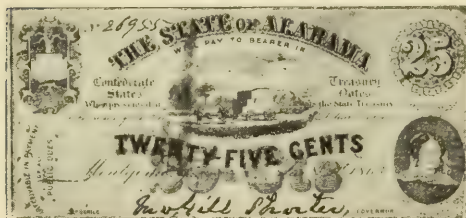 No 26955
THE STATE OF ALABAMA
WILL PAY TO BEARER IN
25
Confederate States
Treasury Notes
When presented at
the State Treasury
TWENTY-FIVE CENTS
RECEIVABLE IN PAYMENT
OF ALL
PUBLIC DUES
2D SERIES
Jno Gill Shorter
GOVERNOR